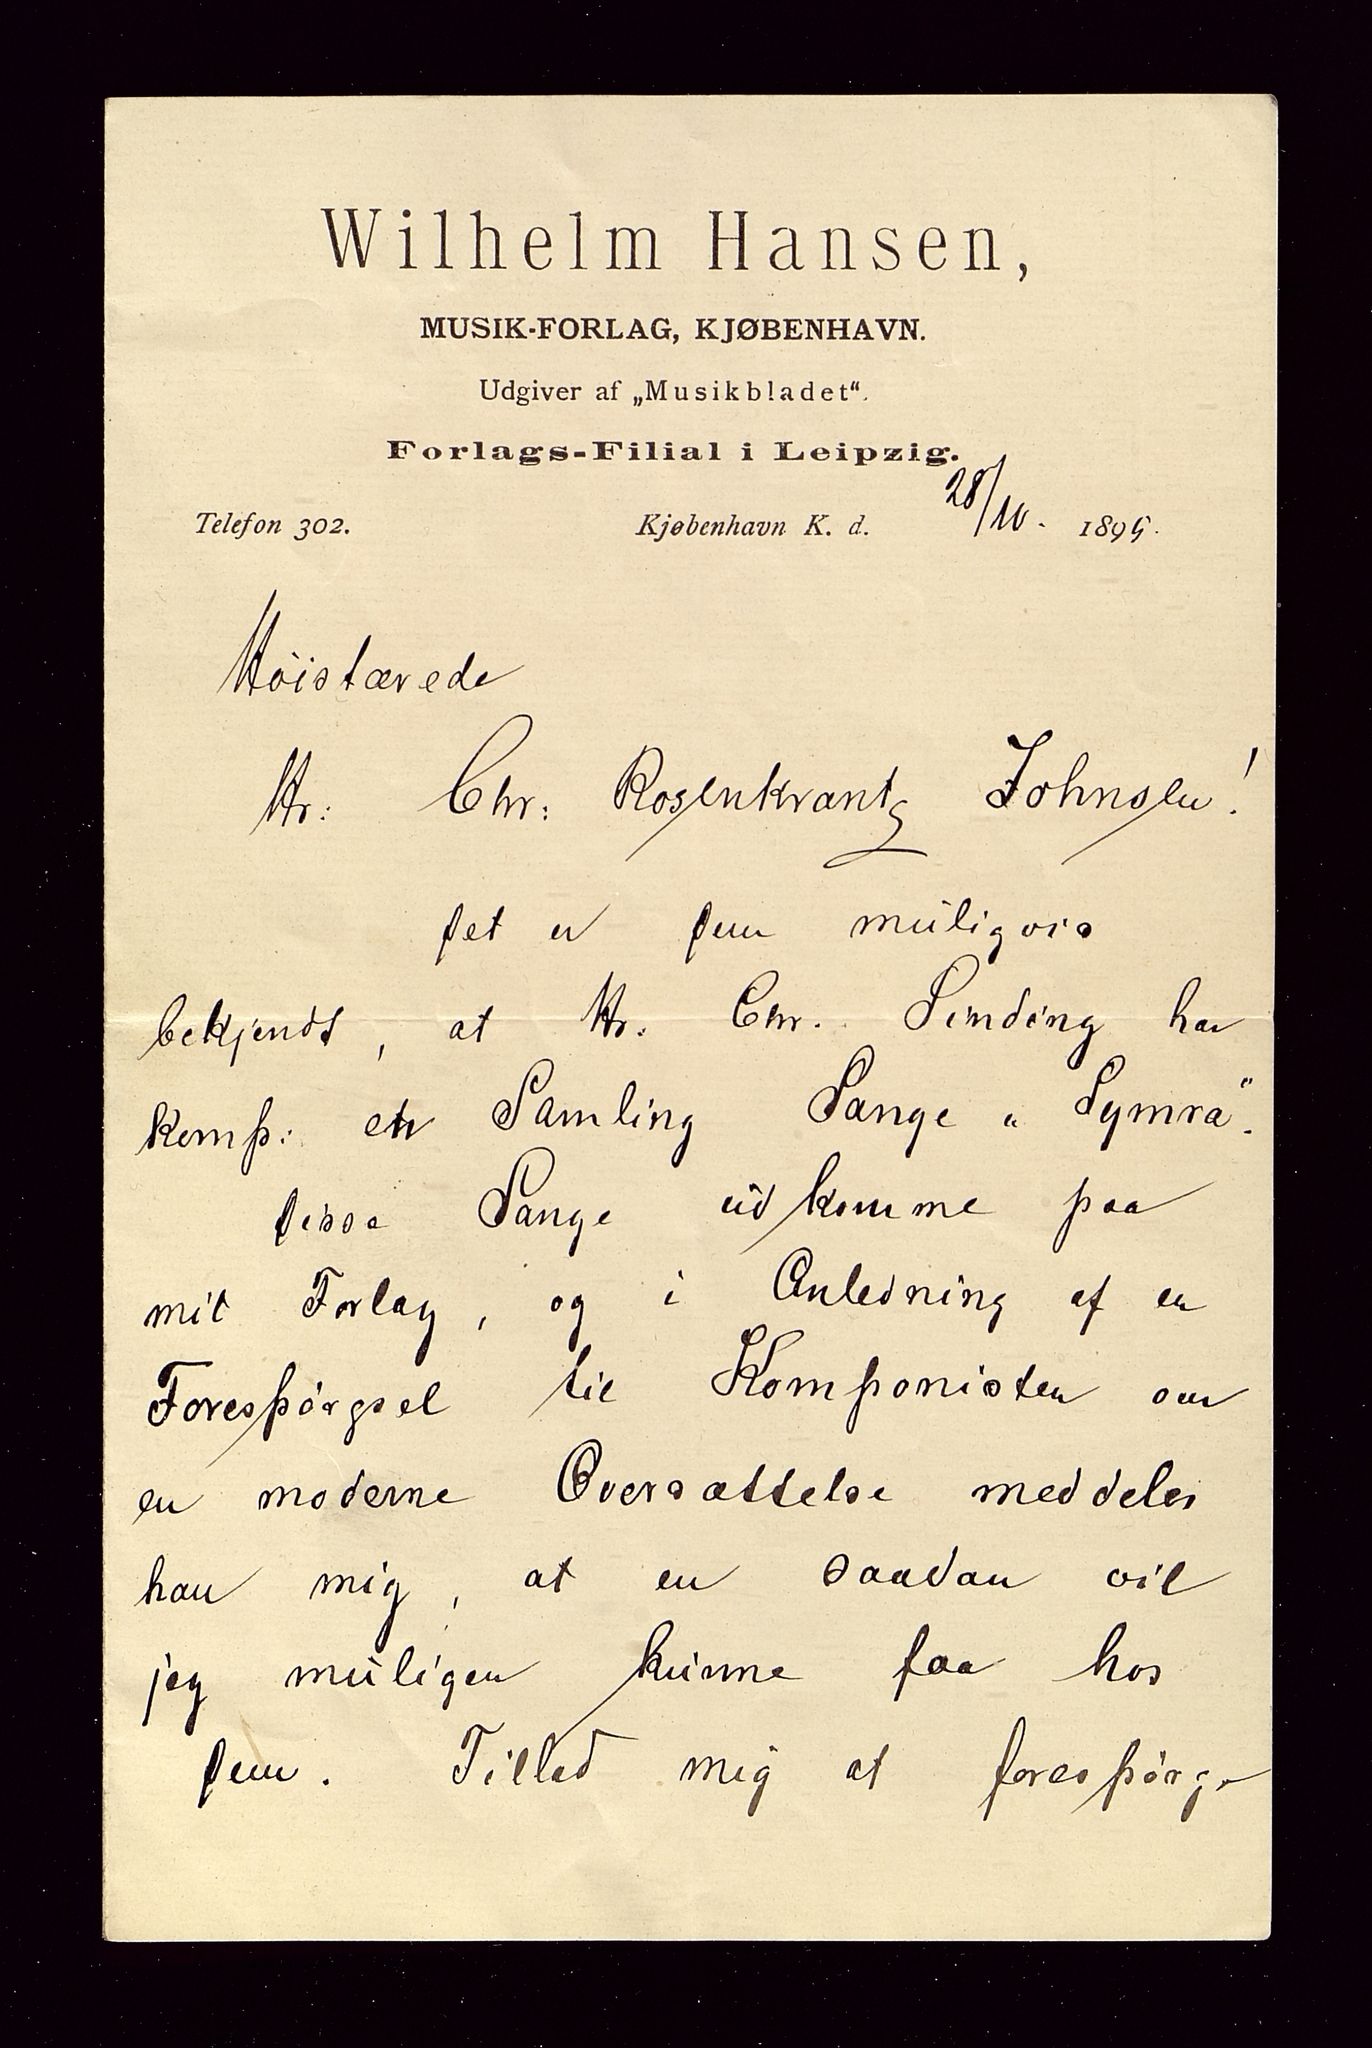 Wilhelm Hansen,
MUSIK-FORLAG, KJØBENHAVN.
Udgiver af „Musikbladet“.
Forlags-Filial i Leipzig.
Telefon 302. Kjøbenhavn K. d. 28/10. 1895.
Höistærede
Hr: Chr: Rosenkrantz Johnsen!
Det er Dem muligvis
bekjendt, at Hr. Chr. Sinding har
komp: en Samling Sange „Symra“.
Disse Sange udkomme paa
mit Forlag, og i Anledning af en
Forespörgsel til Komponisten om
en moderne Oversættelse meddeler
han mig, at en saadan vil
jeg muligen kunne faa hos
Dem. Tillad mig at forespörge